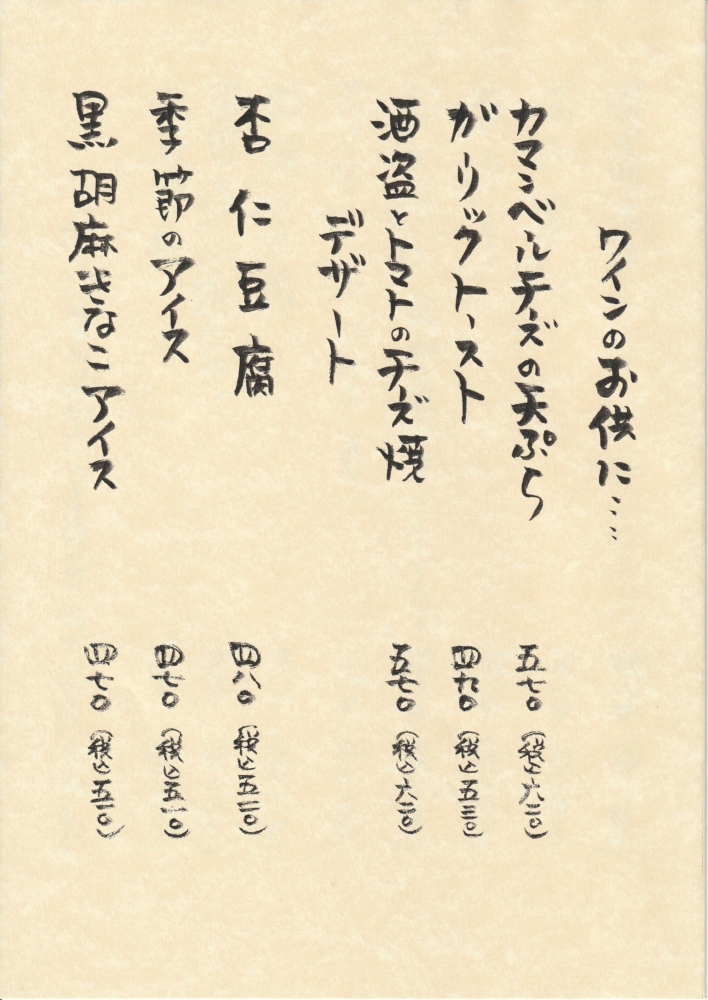 ワインのお供に…
カマンベールチーズの天ぷら 五七〇（税込六二〇）
ガーリックトースト 四九〇（税込五三〇）
酒盗とトマトのチーズ焼 五七〇（税込六二〇）
デザート
杏仁豆腐 四八〇（税込五二〇）
季節のアイス 四七〇（税込五一〇）
黒胡麻きなこアイス 四七〇（税込五一〇）